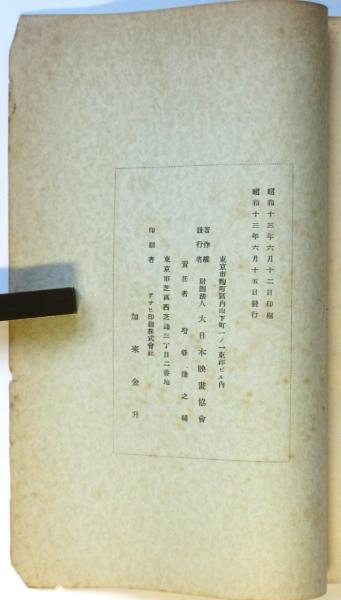 昭和十三年六月十二日印刷
昭和十三年六月十五日發行
東京市麴町區內山下町一ノ一東洋ビル內
著作權
發行者 財團法人 大日本映畫協會
責任者
東京市芝區西芝浦三丁目二番地
印刷者 アサヒ印刷株式會社
加來金升